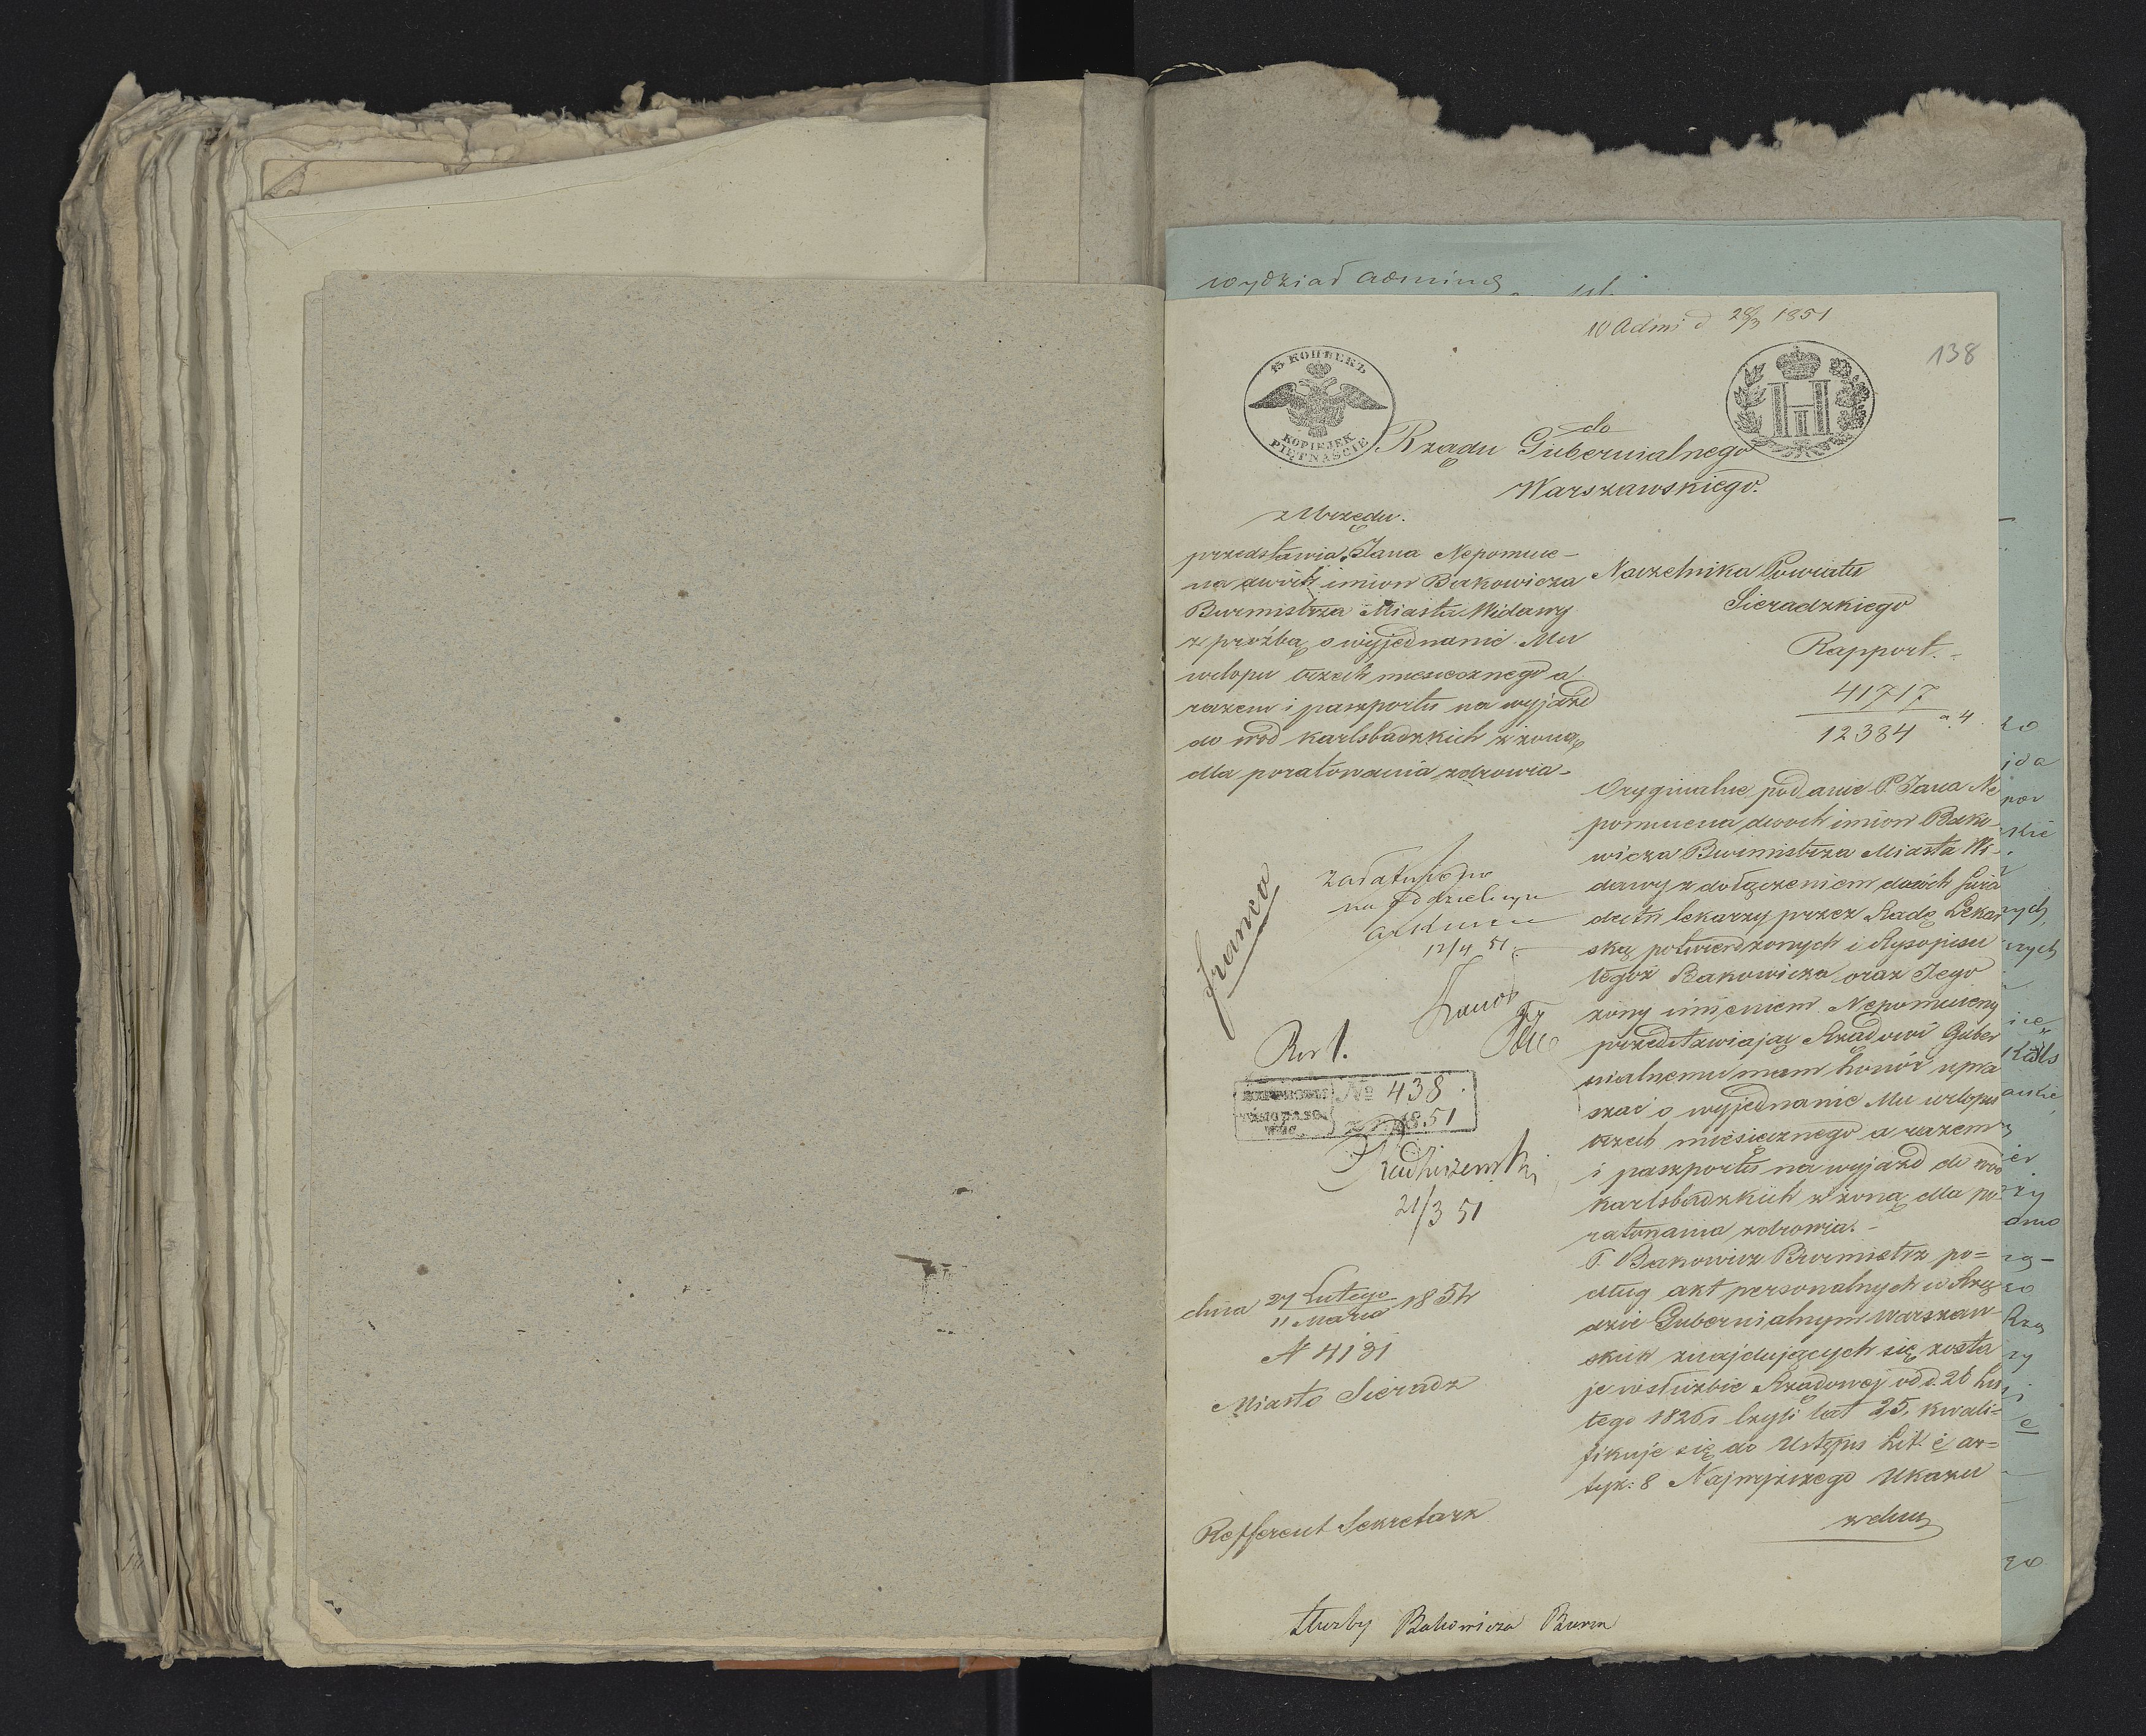 wydział adming
W Admi d 28/3 1851
138
15 КОПѢЕКЪ
KOPIEJEK
PIĘTNAŚCIE
do
Rządu Gubernialnego
Warszawskiego.
z Urzędu.
przedstawia Jana Nepomuce-
na dwóch imion Bakowicza
Burmistrza Miasta Widawy
z proźbą o wyjednanie Mu
urlopu trzech miesiecznego a
razem i paszportu na wyjazd
do wód karlsbadzkich z żoną
dla poratowania zdrowia-
Naczelnika Powiatu
Sieradzkiego
Rapport.-
41717
12384 a. 4.
Oryginalne podanie P. Jana Ne
pomucena dwoch imion Bako-
wicza Burmistrza Miasta Wi-
dawy z dołączeniem dwóch świa
dectw lekarzy przez Radę Lekar
ską potwierdzonych i Rysopisu
tegoż Bakowicza oraz Jego
żony imieniem Nepomuceny
przedstawiając Rządowi Guber
nialnemu mam honór upra
szać o wyjednanie Mu urlopu
trzech miesięcznego a razem
i paszportu na wyjazd do wód
karlsbadzkich z żoną dla po-
ratowania zdrowia.-
P. Bakowicz Burmistrz po=
dług akt personalnych w Rzą
dzie Gubernialnym Warszaw
skim znajdujących się zosta
je w służbie Rządowej od d. 26 Lu
tego 1826 r czyli lat 25, kwali=
fikuje się do Ustępu Lit. e ar=
tyk: 8 Najwyższego Ukazu
z dnia
franco
załatwiono
na oddzielnym
arkuszu
12/4 51.
№ 438.
1851
21/3 51
dnia 27 Lutego
11 Marca 1851
N 4131
Miasto Sieradz
Refferent Sekretarz
służby Bakowicza Burm